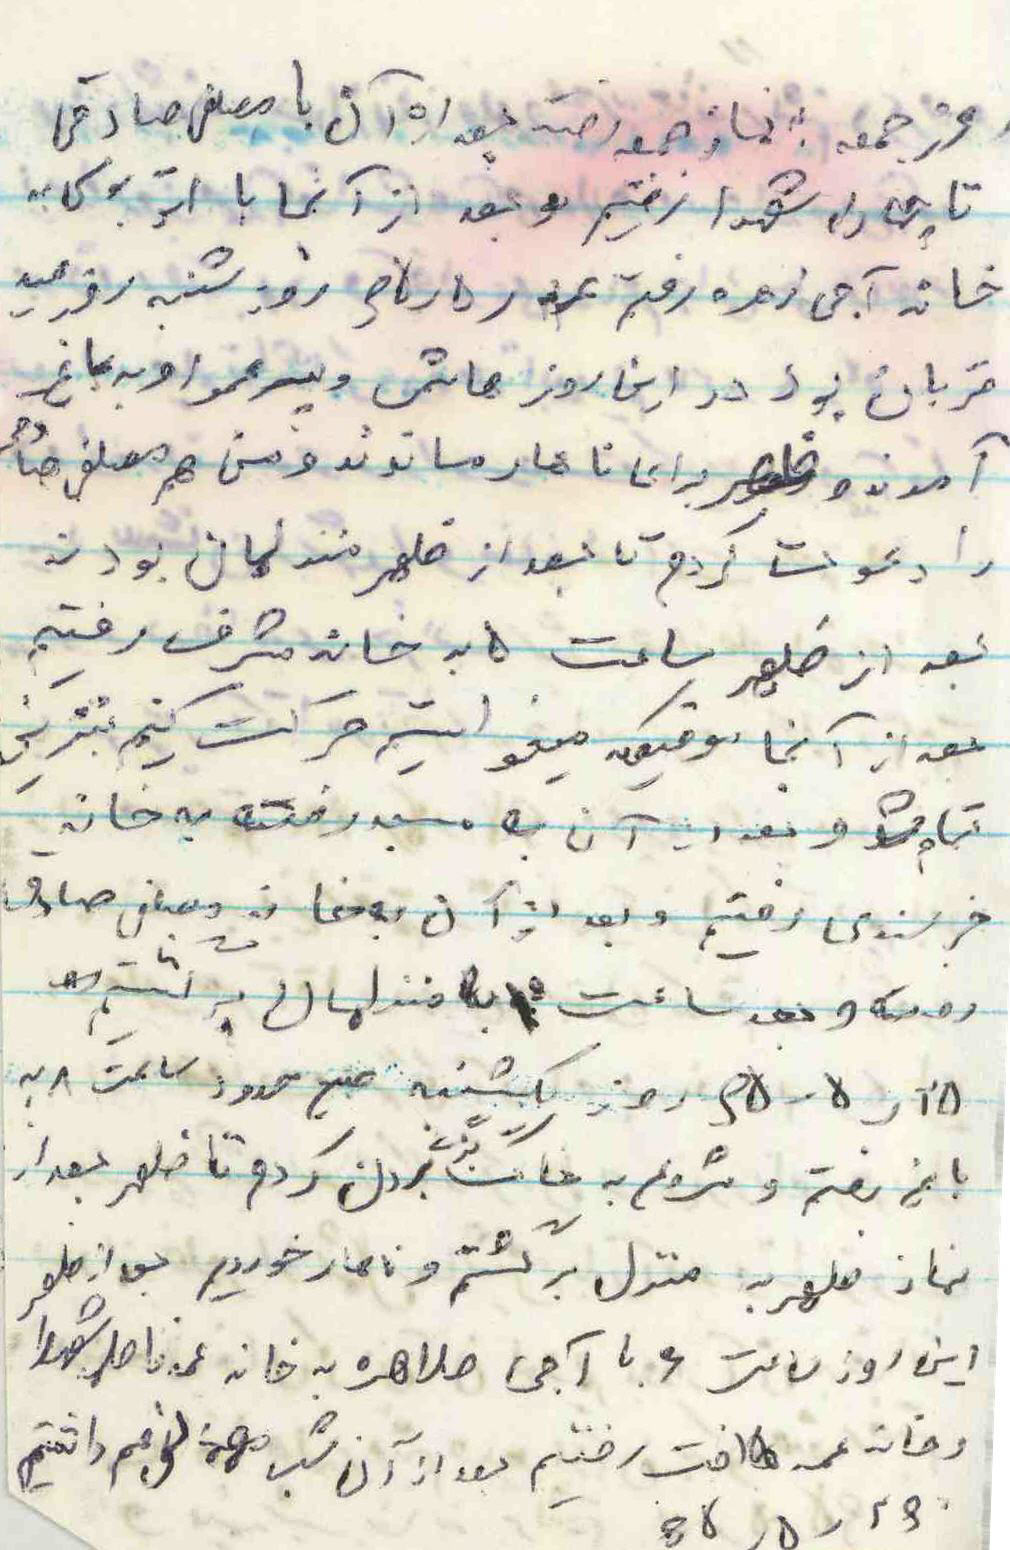 روز جمعه به نماز جمعه رفته بعد از آن با مصطفی صادقی
تا چهار راه شهدا رفتیم و بعد از آنجا با اتوبوس به
خانه آجی زهره رفتیم روز شنبه روز عید
قربان بود در این روز هاشمی و پسر عمو او به باغ
آمدند و برای ناهار ماندند و من هم مصطفی صادقی
را دعوت کردم تا بعد از ظهر منزلمان بودند
بعد از ظهر ساعت ۵ به خانه مشرف رفتیم
بعد از آنجا موقعیکه میخواستیم حرکت کنیم بنزین
تمام شد و بعد از آن به مسجد رفته به خانه
خرسندی رفتیم و بعد از آن به خانه مصطفی صادقی
رفته و بعد ساعت ۱۰ به منزلمان برگشتیم
روز یکشنبه صبح حدود ساعت ۸ به
باغ رفتم و شروع به کردن کردم تا ظهر بعد از
نماز ظهر به منزل برگشتم و ناهار خوردیم بعد از ظهر
این روز ساعت ۶ با آجی طاهره به خانه عمه شهدا
و خانه عمه رفتیم بعد از آن شب هم داشتیم